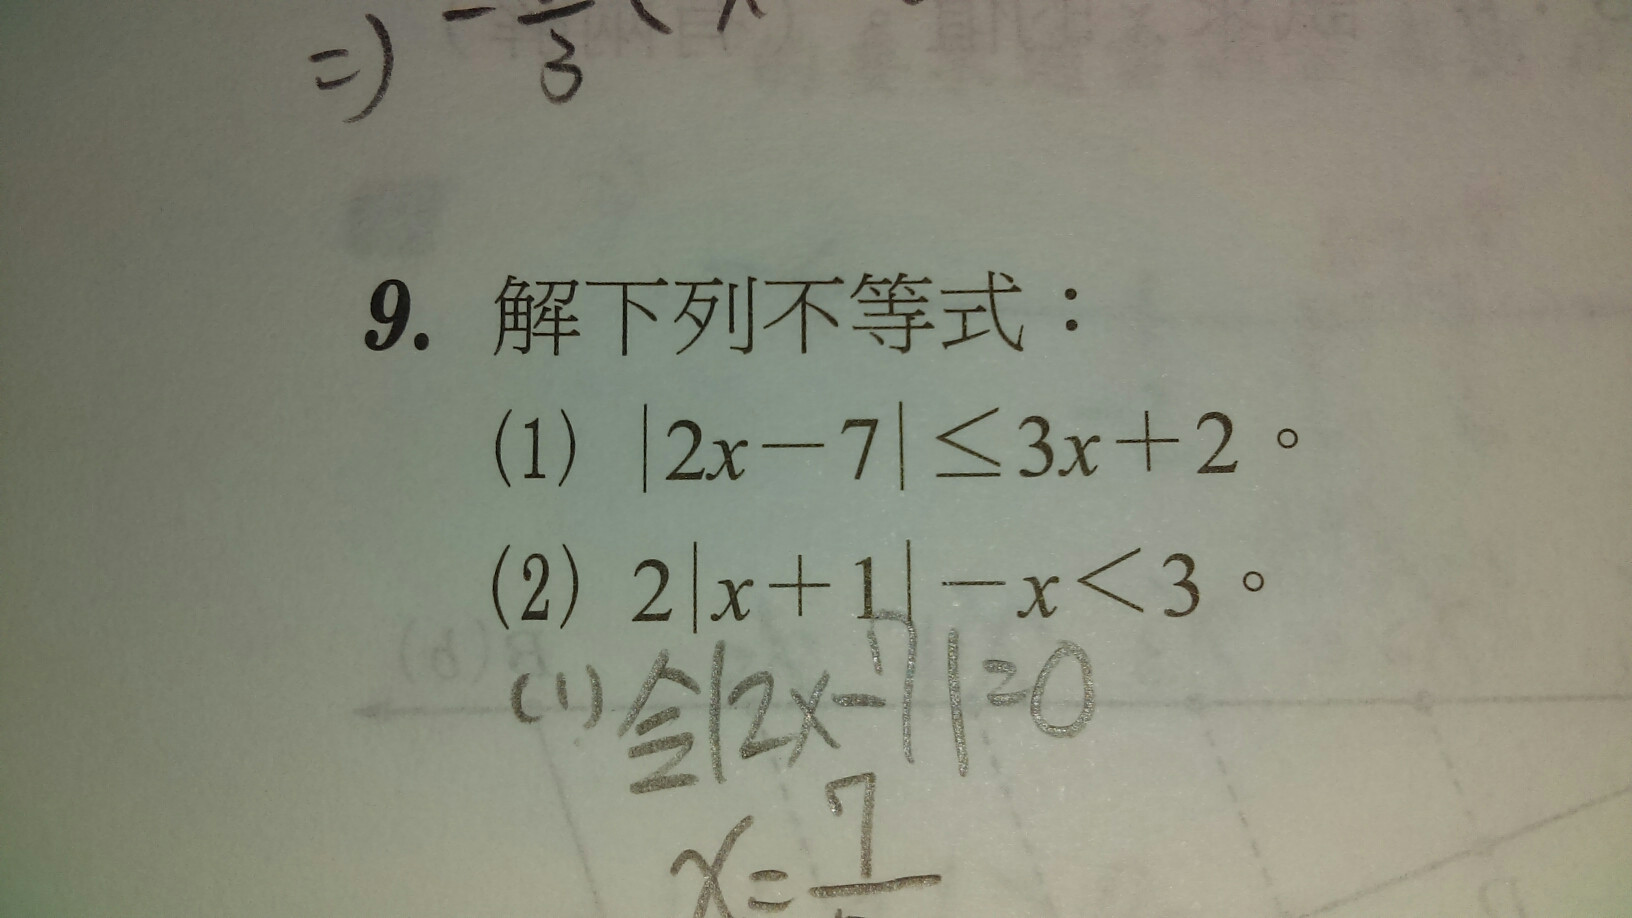 =) -
3
9. 解下列不等式：
(1) |2x－7|≤3x＋2。
(2) 2|x＋1|－x＜3。
(1) 令|2x-7|=0
x=7